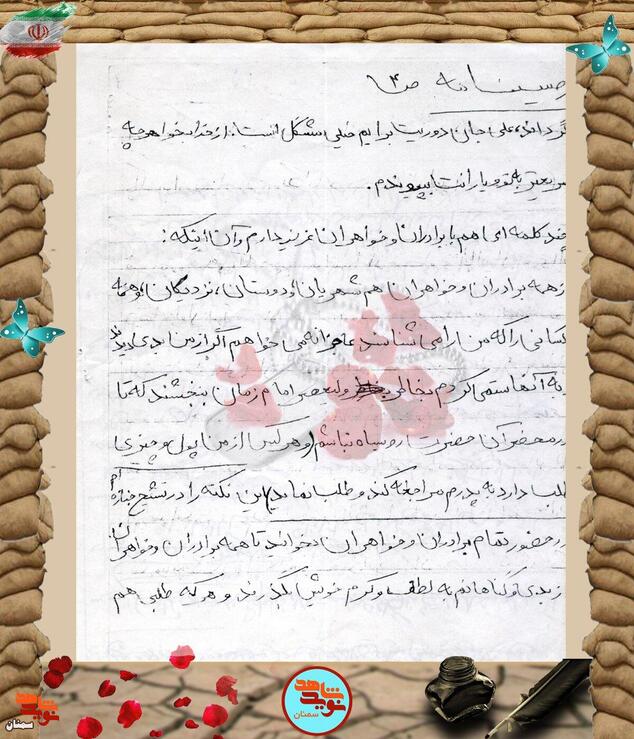 وصیتنامه ص ۴
گرداند، علی جان دوریت برایم خیلی مشکل است. از خدا بخواه هرچه
سریعتر به تو و یارانت بپیوندم.
چند کلمه ای هم با برادران و خواهران عزیز دارم و آن اینکه:
از همه برادران و خواهران هم شهریان و دوستان، نزدیکان و همه
کسانی را که من را می شناسند عاجزانه می خواهم اگر از من بدی دیدند
به آنها ستمی کردم بخاطر ولیعصر امام زمان ببخشند که تا
در محضر آن حضرت رو سیاه نباشم (و هر کس از من پول و چیزی
طلب دارد به پدرم مراجعه کند و طلب نماید) این نکته را در تشیع جنازه ام
در حضور تمام برادران و خواهران بخوانید تا همه برادران و خواهران
از بدی و گناهانم به لطف و کرم خویش بگذرند و هر که طلبی هم
نوید شاهد
سمنان
نوید شاهد
سمنان